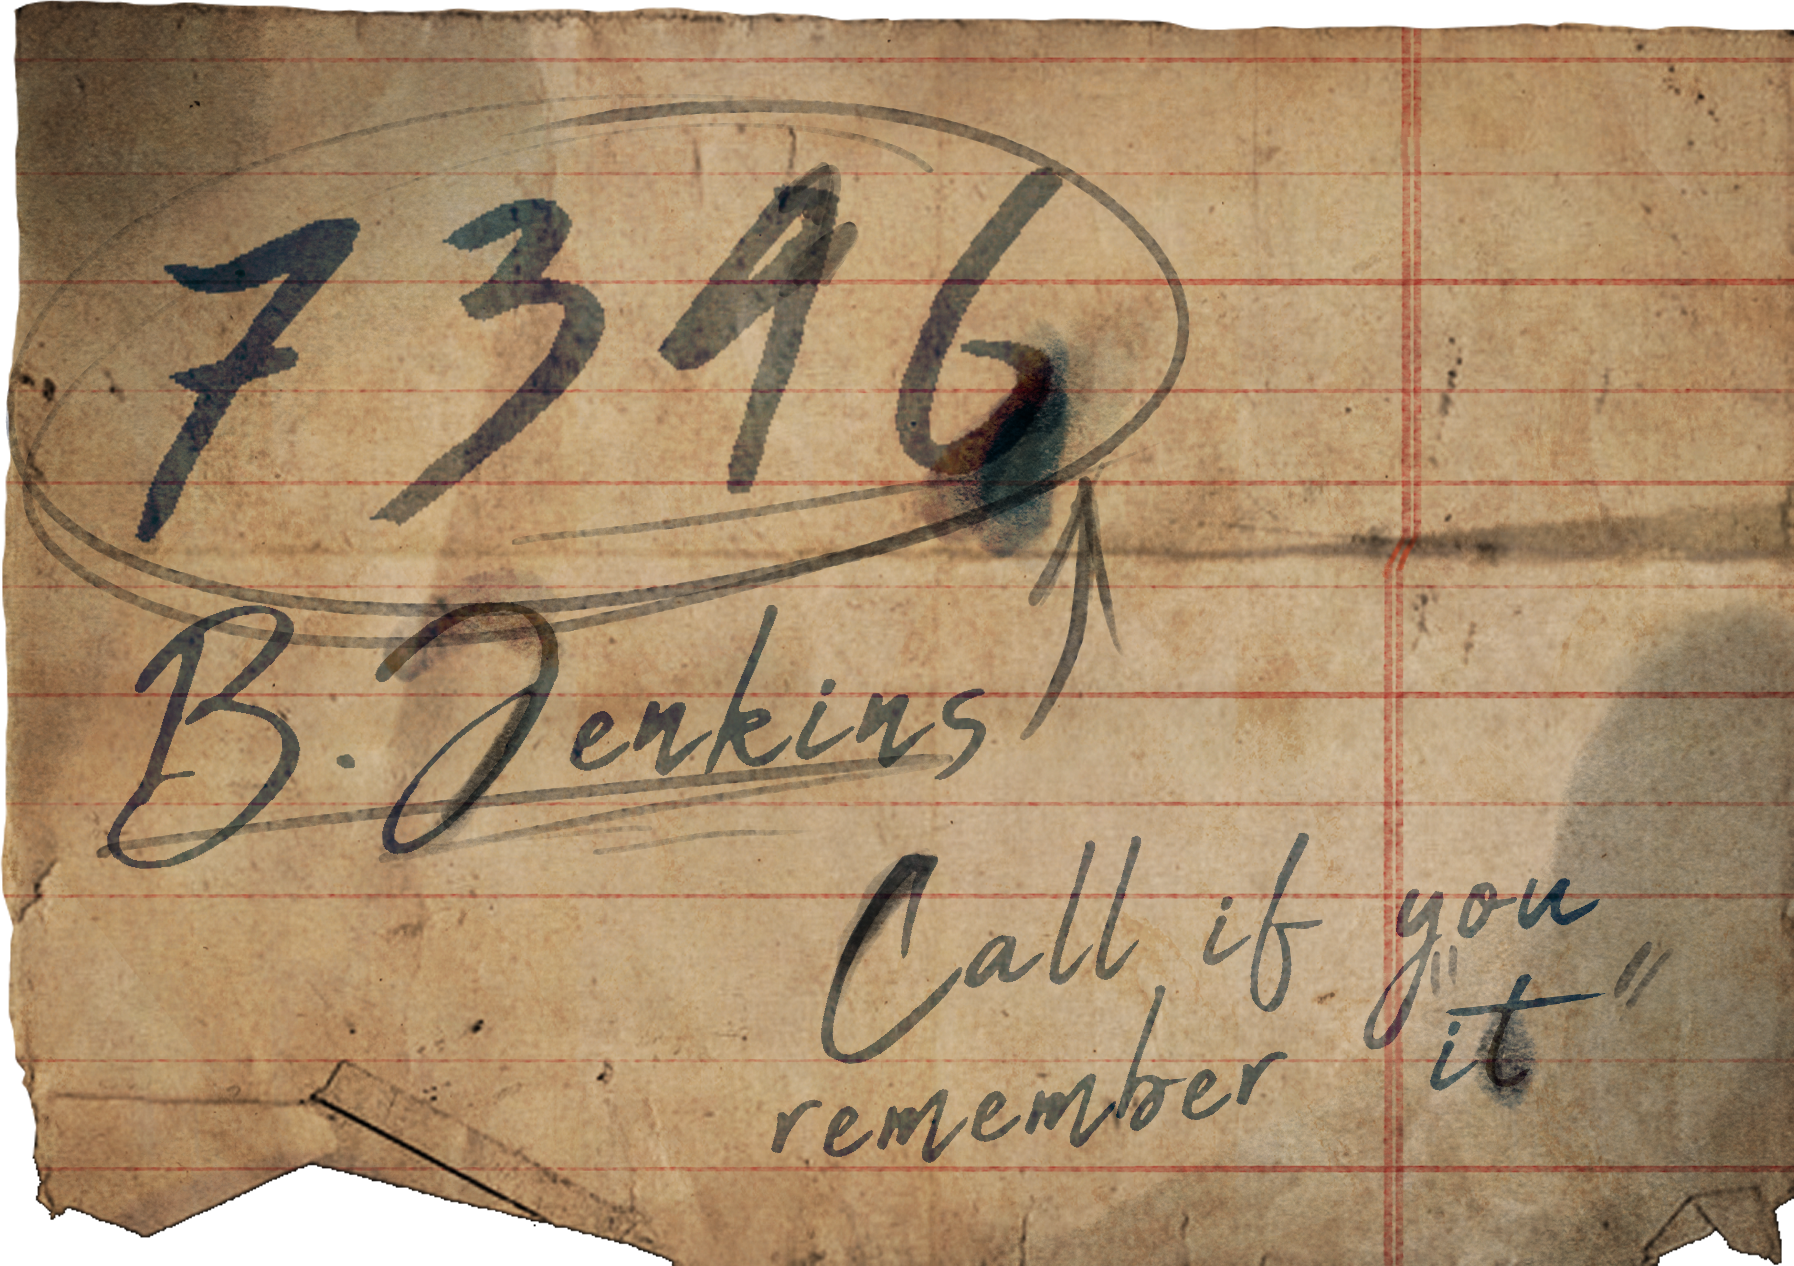 7396
B. Jenkins
Call if you
remember "it"